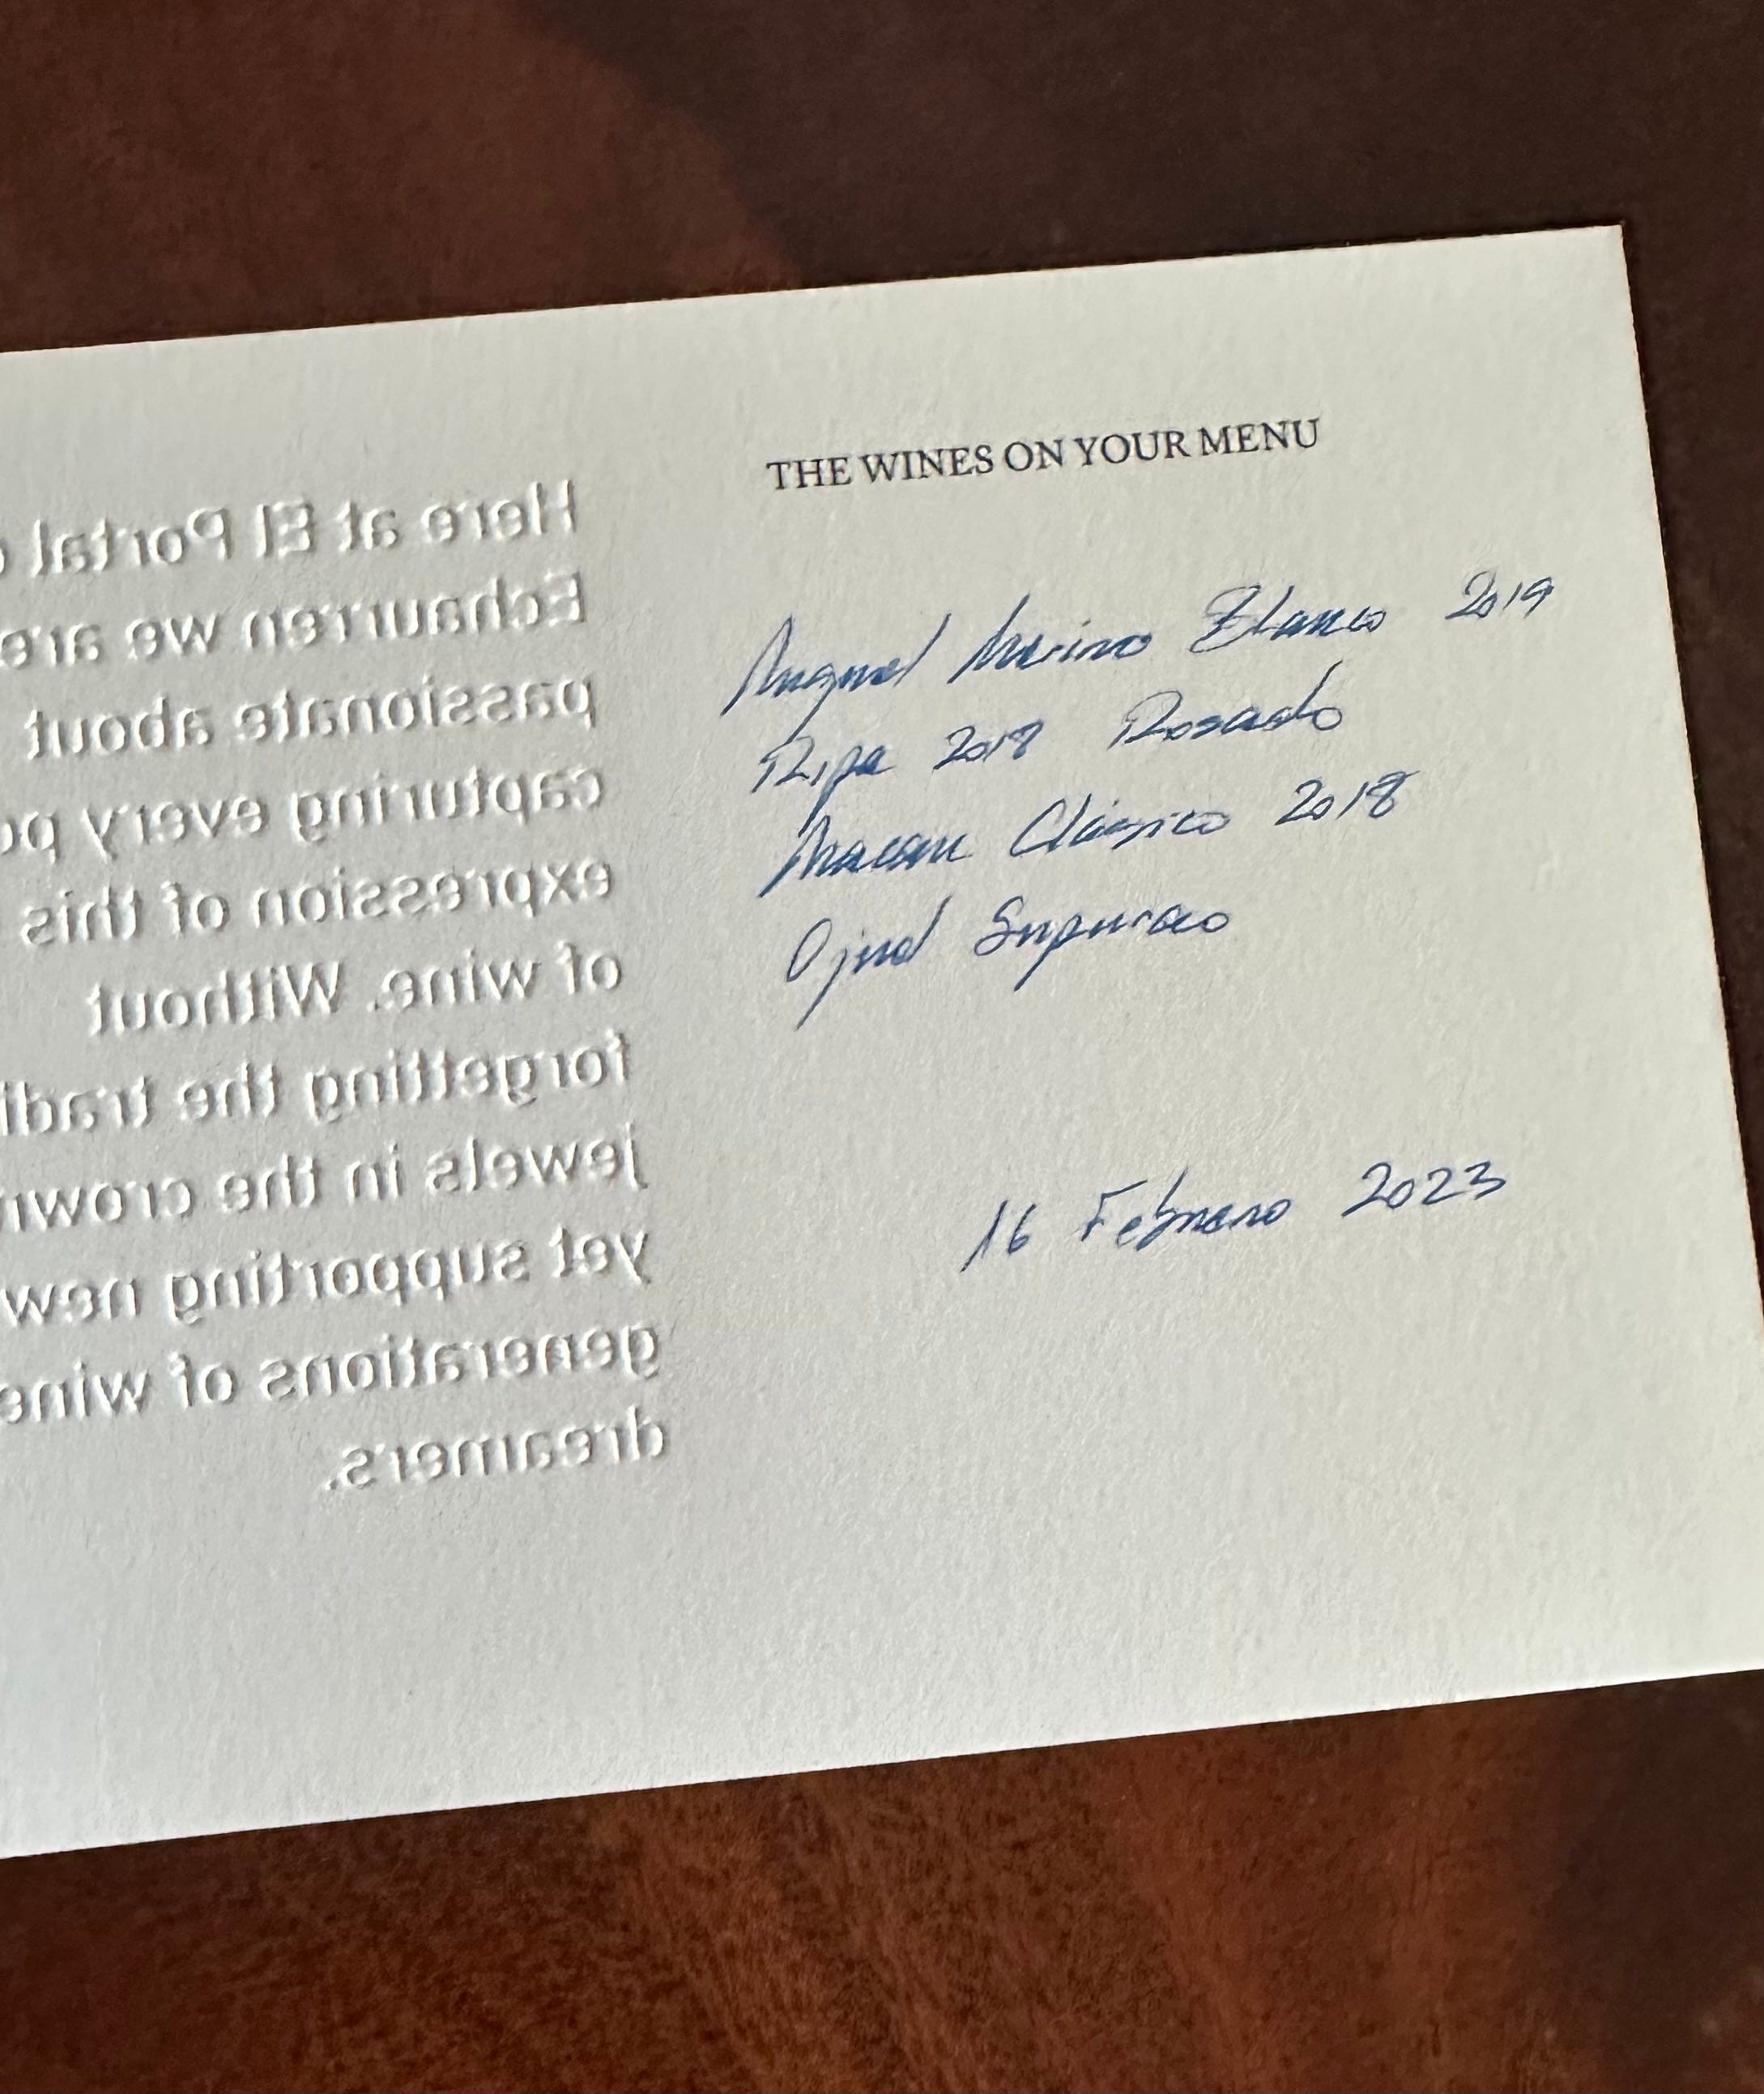 THE WINES ON YOUR MENU
Miguel Merino Blanco 2019
Ripa 2018 Rosado
Macan Clásico 2018
Ojuel Supurao
16 Febrero 2023
Here at El Portal
Echaurren we are
passionate about
capturing every
expression of this
of wine. Without
forgetting the
jewels in the crown
yet supporting new
generations of wine
dreamers.